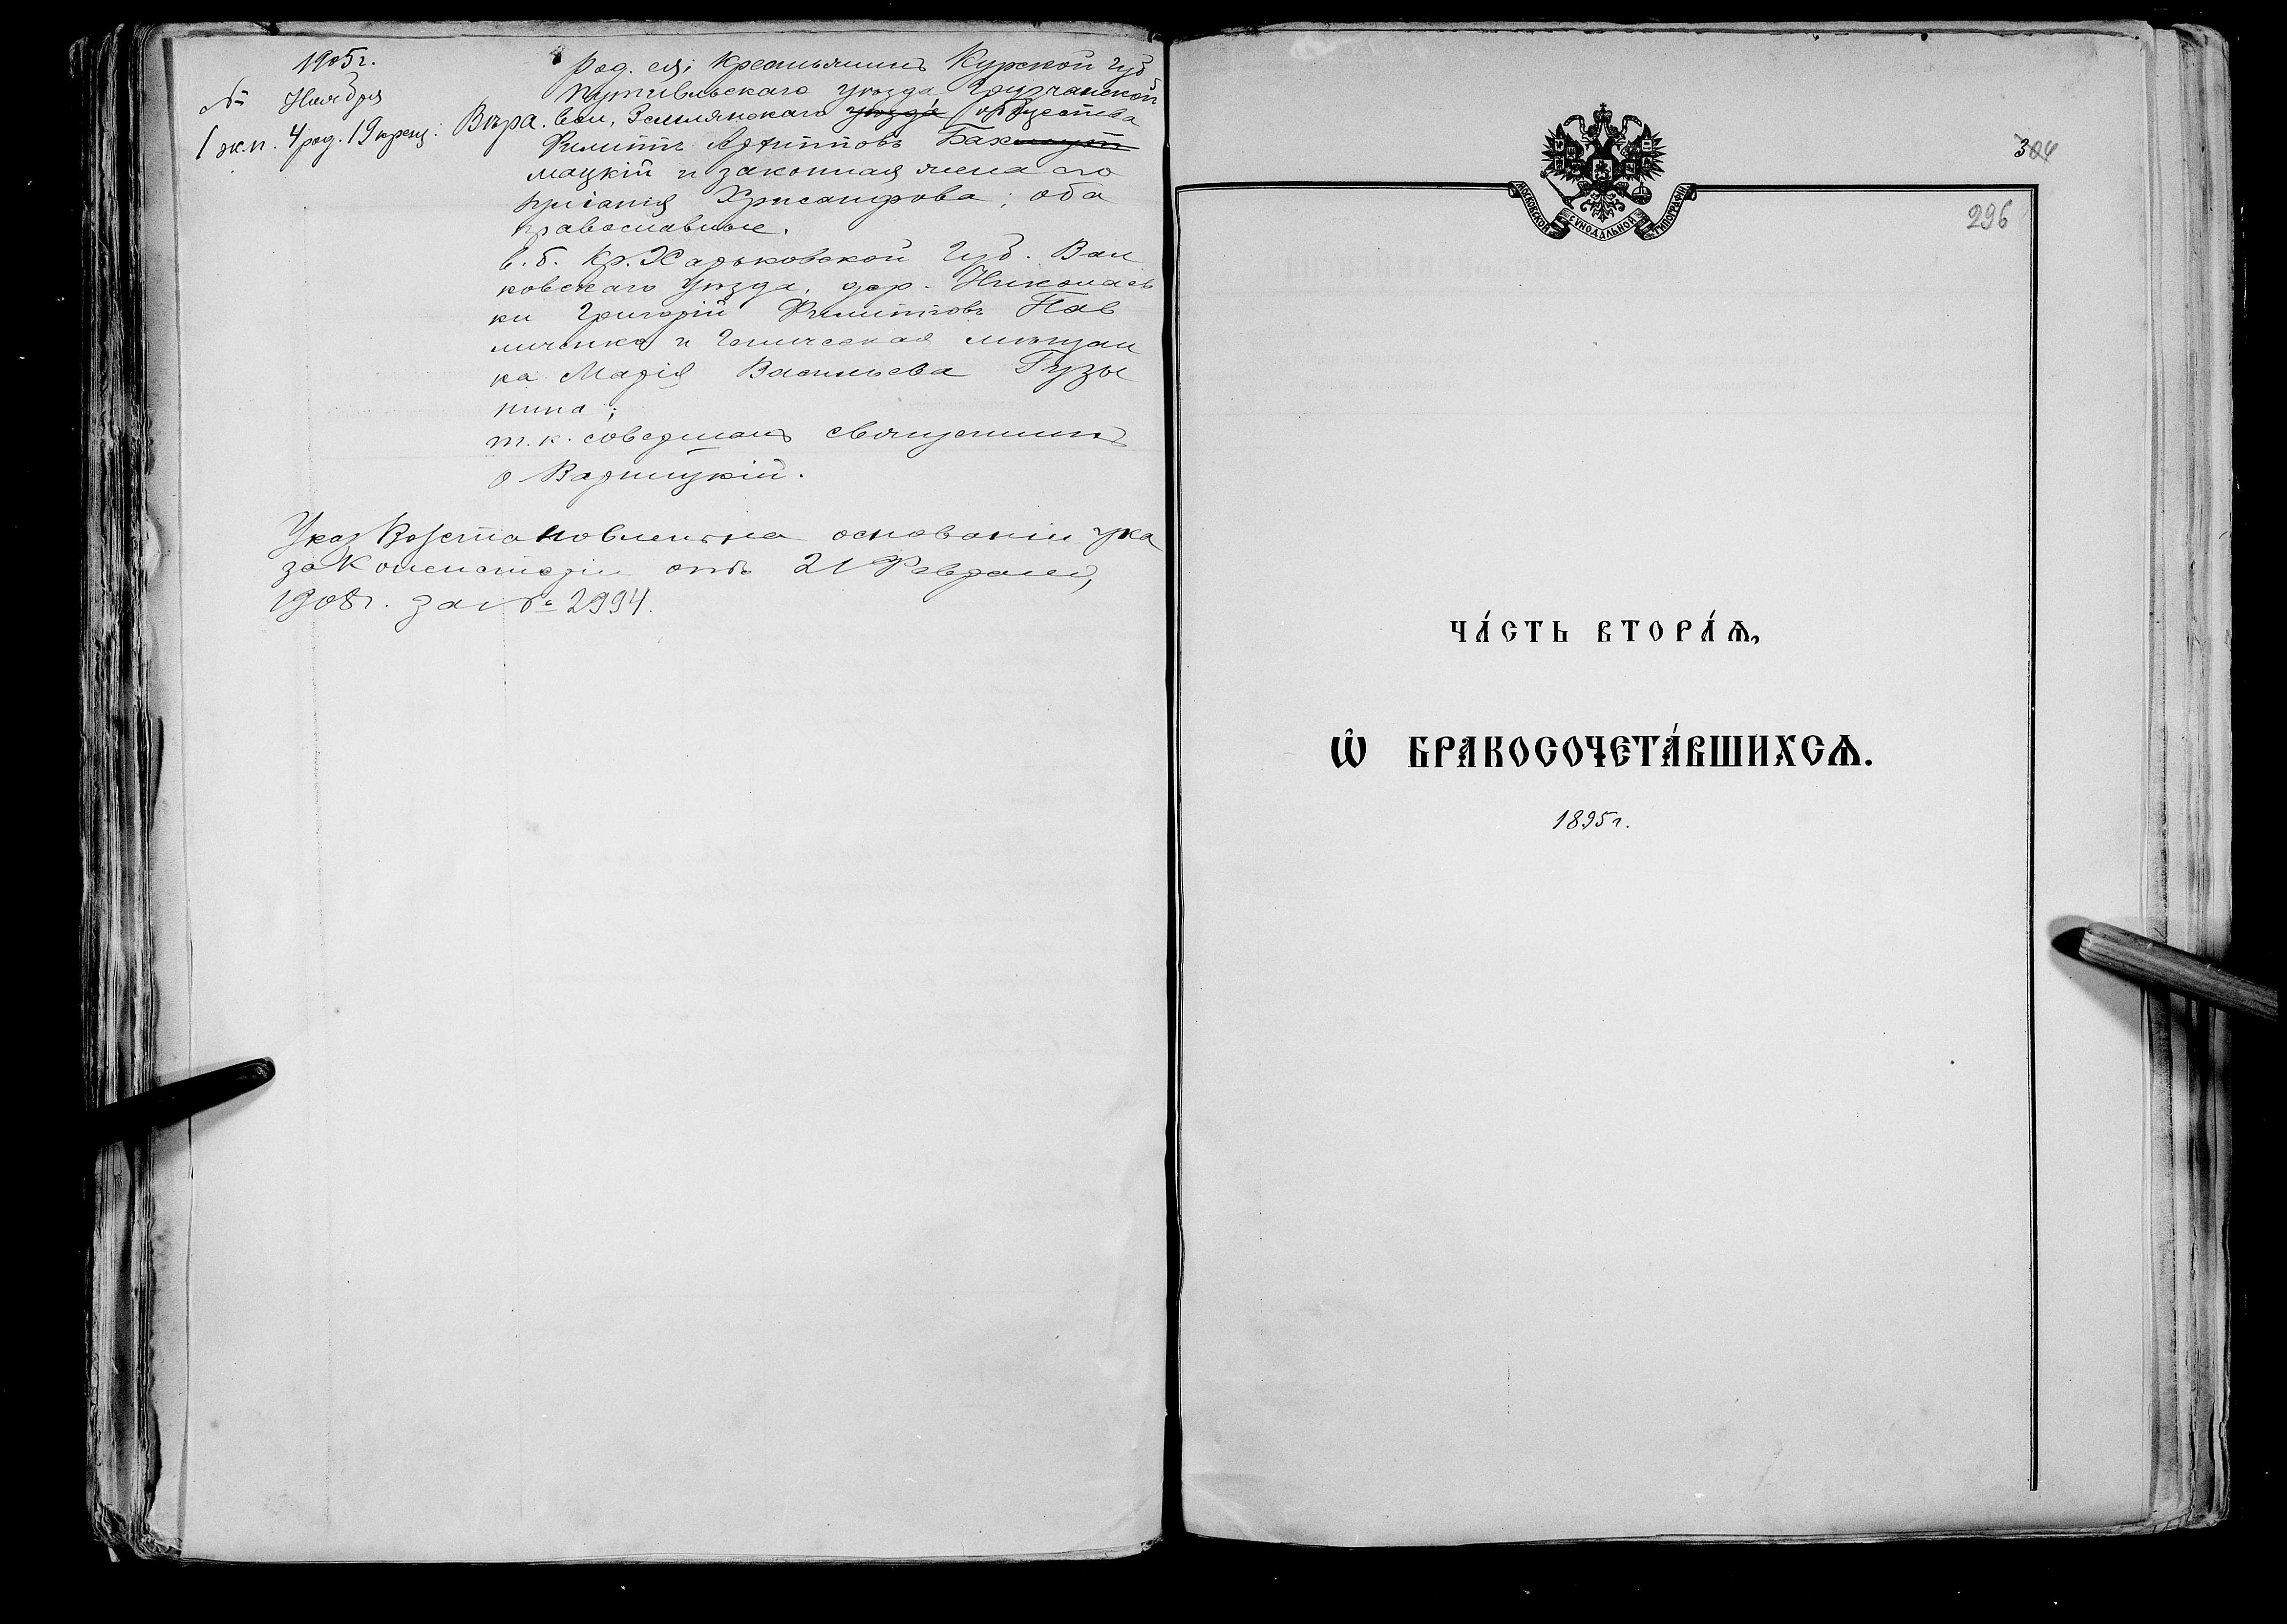 1905 г.
№ Ноября
1 ж.п. 4 род. 19 крещ. Вѣра.
род. ея; Крестьянинъ Курской губ
Путивльскаго уѣзда Грузчанской
вол, Землянскаго уѣзда общества
Филиппъ Архиповъ Бахмут
мацкій и законная жена его
Хрисанфова; оба
православные.
в. б. Кр. Харьковской Губ. Вал
ковскаго уѣзда, дер. Николаев
ки Григорій Филипповъ Пав
личенко и Геническая мѣщан
ка Марія Васильева Гузы
нина;
т. к. совершалъ священникъ
о Варницкій.
Указ Возстановлена на основаніи ука
за Консисторіи отъ 21 Февраля,
1908 г. за № 2994.
304
296
МОСКОВСКОЙ СѴНОДАЛЬНОЙ ТИПОГРАФІИ
ЧА́СТЬ ВТОРА́Ѧ,
Ѽ БРАКОСОЧЕТА́ВШИХСѦ.
1895 г.